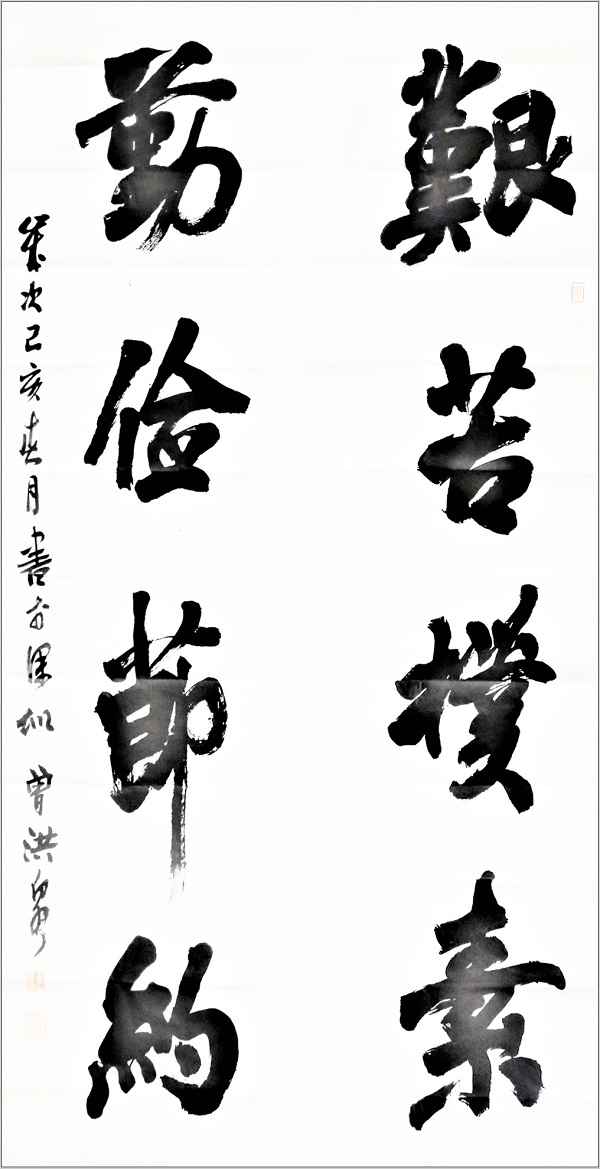 艱苦樸素
勤儉節約
歲次己亥春月書於深圳 曾洪